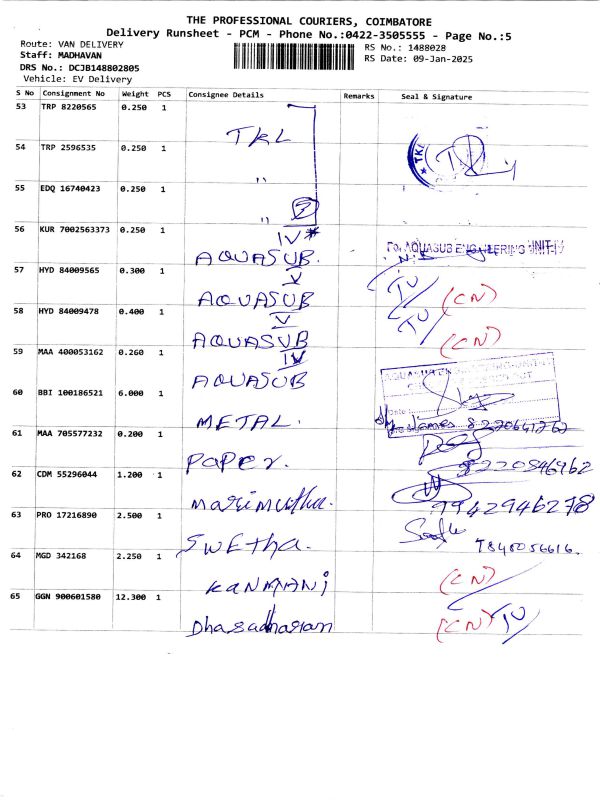 THE PROFESSIONAL COURIERS, COIMBATORE
Delivery Runsheet - PCM - Phone No.:0422-3505555 - Page No.:5
Route: VAN DELIVERY
RS No.: 1488028
Staff: MADHAVAN
RS Date: 09-Jan-2025
DRS No.: DCJB148802805
Vehicle: EV Delivery
S No Consignment No Weight PCS Consignee Details Remarks Seal & Signature
53 TRP 8220565 0.250 1
TKL
TKL
54 TRP 2596535 0.250 1
"
55 EDQ 16740423 0.250 1
"
56 KUR 7002563373 0.250 1
IV*
AQUASUB.
For AQUASUB ENGINEERING UNIT-IV
57 HYD 84009565 0.300 1
V
AQUASUB
TU (CN)
58 HYD 84009478 0.400 1
V
AQUASUB
TU (CN)
59 MAA 400053162 0.260 1
IV
AQUASUB
60 BBI 100186521 6.000 1
METAL.
61 MAA 705577232 0.200 1
PAPER.
8220846962
62 CDM 55296044 1.200 1
Marimuthu.
9942946278
63 PRO 17216890 2.500 1
SWETHA.
7840056616.
64 MGD 342168 2.250 1
KANMANI
(CN)
65 GGN 900601580 12.300 1
Dhasadharan
(CN) TU